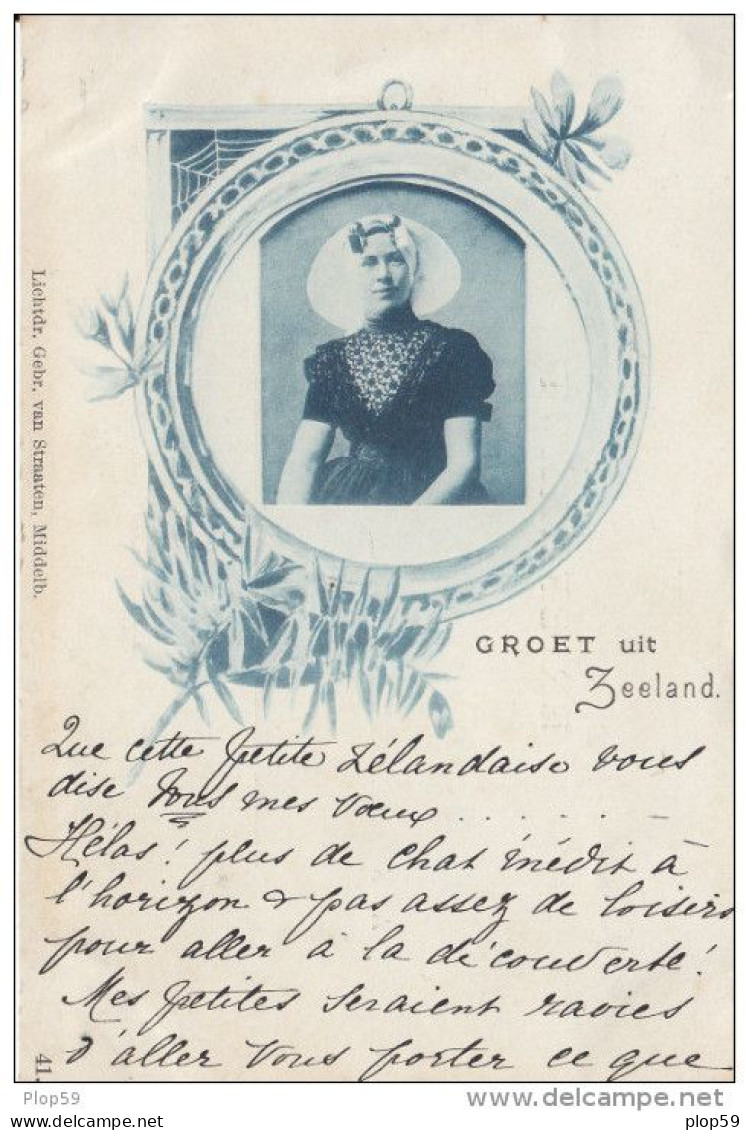 Lichtdr. Gebr. van Straaten, Middelb.
GROET uit
Zeeland.
Que cette petite zélandaise vous
dise tous mes vœux . . . . . . —
Hélas! plus de chat inédit à
l'horizon & pas assez de loisirs
pour aller à la découverte!
Mes petites seraient ravies
d'aller vous porter ce que
41.
Plop59
www.delcampe.net
plop59